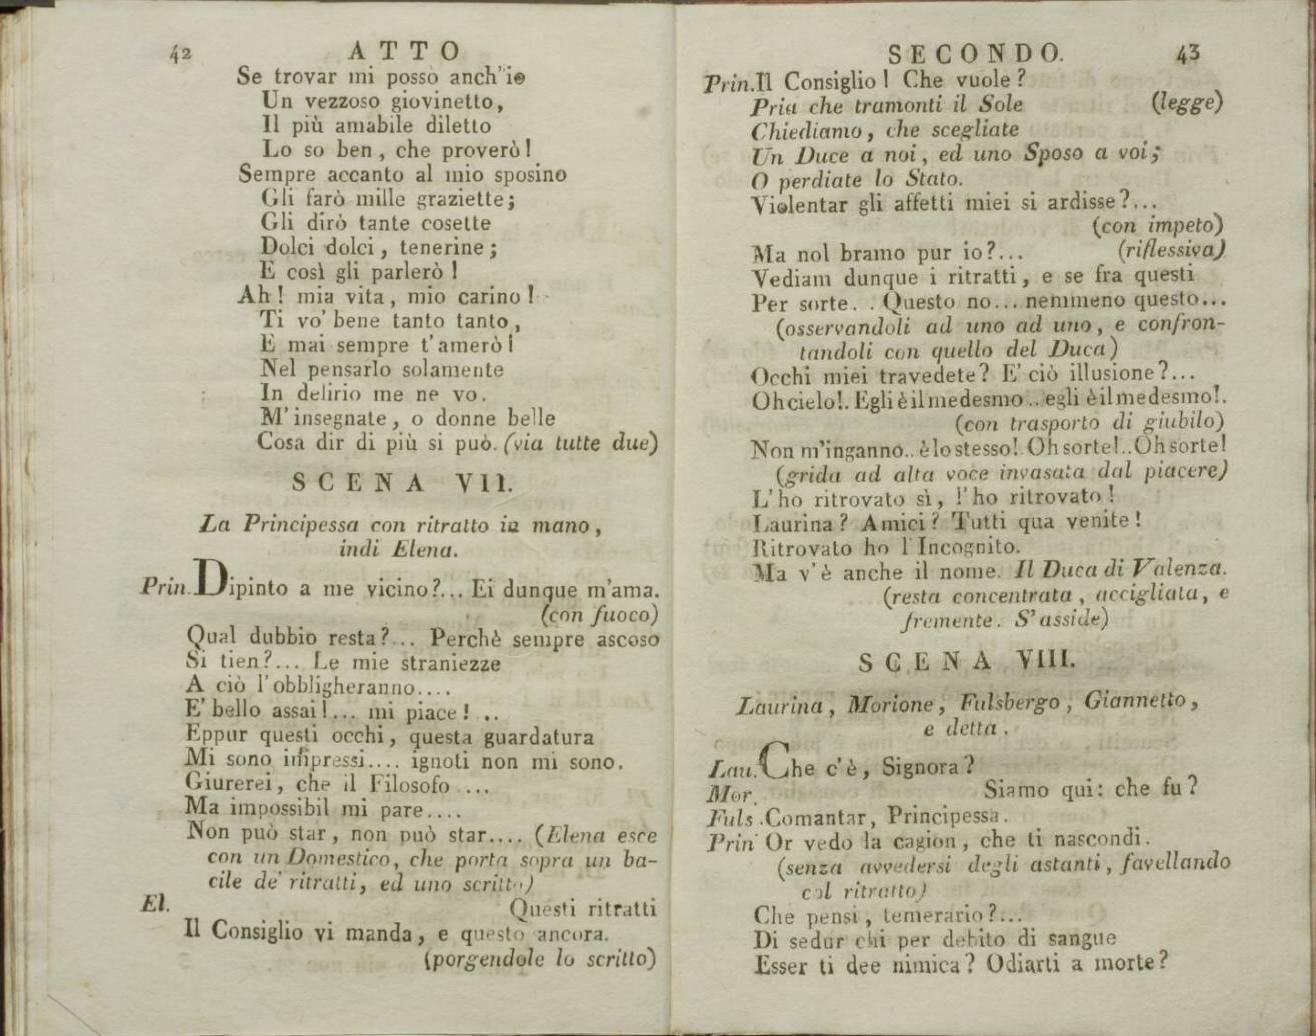 42 ATTO
Se trovar mi posso anch' io
Un vezzoso giovinetto,
Il più amabile diletto
Lo so ben, che proverò!
Sempre accanto al mio sposino
Gli farò mille graziette;
Gli dirò tante cosette
Dolci dolci, tenerine;
E così gli parlerò!
Ah! mia vita, mio carino!
Ti vo' bene tanto tanto,
E mai sempre t' amerò!
Nel pensarlo solamente
In delirio me ne vo.
M' insegnate, o donne belle
Cosa dir di più si può. (via tutte due)
SCENA VII.
La Principessa con ritratto in mano,
indi Elena.
Prin. Dipinto a me vicino?... Ei dunque m'ama.
(con fuoco)
Qual dubbio resta?... Perchè sempre ascoso
Si tien?... Le mie straniezze
A ciò l'obbligheranno....
E' bello assai!... mi piace! ..
Eppur questi occhi, questa guardatura
Mi sono impressi.... ignoti non mi sono.
Giurerei, che il Filosofo ...
Ma impossibil mi pare....
Non può star, non può star.... (Elena esce
con un Domestico, che porta sopra un ba-
cile de' ritratti, ed uno scritto)
El. Questi ritratti
Il Consiglio vi manda, e questo ancora.
(porgendole lo scritto)
SECONDO. 43
Prin. Il Consiglio! Che vuole?
Pria che tramonti il Sole (legge)
Chiediamo, che scegliate
Un Duce a noi, ed uno Sposo a voi;
O perdiate lo Stato.
Violentar gli affetti miei si ardisse?...
(con impeto)
Ma nol bramo pur io?... (riflessiva)
Vediam dunque i ritratti, e se fra questi
Per sorte. . Questo no... nemmeno questo...
(osservandoli ad uno ad uno, e confron-
tandoli con quello del Duca)
Occhi miei travedete? E' ciò illusione?...
Oh cielo!. Egli è il medesmo .. egli è il medesmo!.
(con trasporto di giubilo)
Non m'inganno.. è lo stesso! Oh sorte!..Oh sorte!
(grida ad alta voce invasata dal piacere)
L'ho ritrovato sì, l'ho ritrovato!
Laurina? Amici? Tutti qua venite!
Ritrovato ho l'Incognito.
Ma v'è anche il nome. Il Duca di Valenza.
(resta concentrata, accigliata, e
fremente. S'asside)
SCENA VIII.
Laurina, Morione, Fulsbergo, Giannetto,
e detta.
Lau. Che c'è, Signora?
Mor. Siamo qui: che fu?
Fuls. Comantar, Principessa.
Prin Or vedo la cagion, che ti nascondi.
(senza avvedersi degli astanti, favellando
col ritratto)
Che pensi, temerario?...
Di sedur chi per debito di sangue
Esser ti dee nimica? Odiarti a morte?